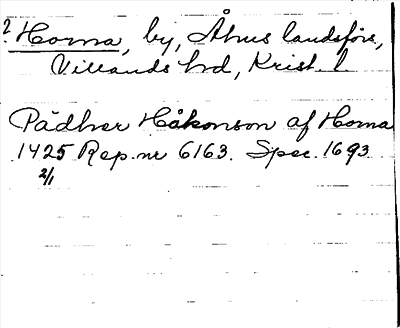 ? Horna, by, Åhus landsförs,
Villands hd, Krist. l
Pädher Håkonson af Horna
1425 Rep. nr 6163. Spec. 1693
2/1